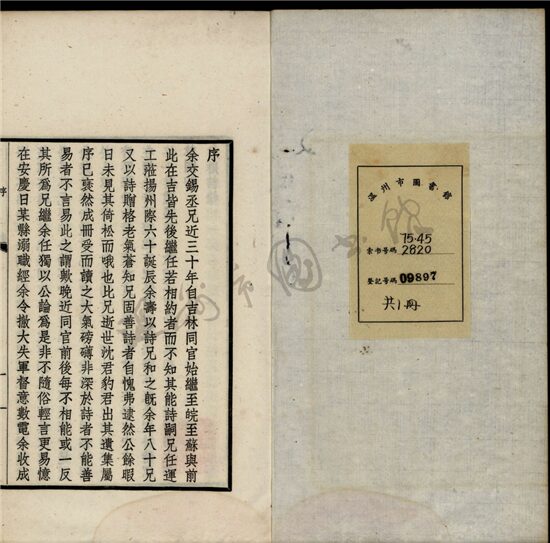 温州市圖書館
索書号碼 75·45
2820
登记号碼 09897
共1冊
序
余交錫丞兄近三十年自吉林同官始繼至皖至蘇與前
此在吉皆先後繼任若相約者而不知其能詩嗣兄任運
工莊揚州際六十誕辰余壽以詩兄和之旣余年八十兄
又以詩贈格老氣蒼知兄固善詩者自愧弗逮然公餘暇
日未見其倚松而哦也比兄逝世沈君豹君出其遺集屬
序已裒然成冊受而讀之大氣磅礴非深於詩者不能善
易者不言易此之謂歟晚近同官前後每不相能或一反
其所為兄繼余任獨以公論為是非不隨俗輕言更易憶
在安慶日某縣溺職經余令撤大失軍督意數電余收成
序
一